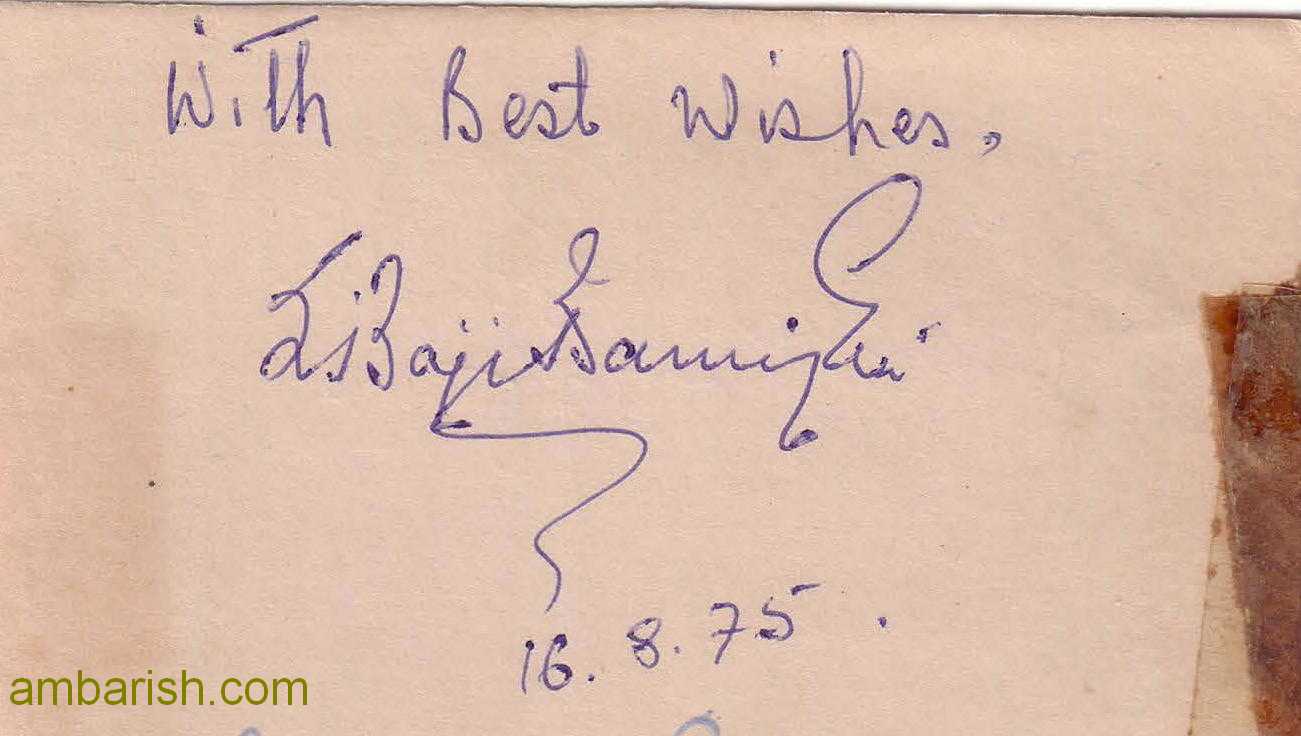 With Best Wishes,
16.8.75.
ambarish.com